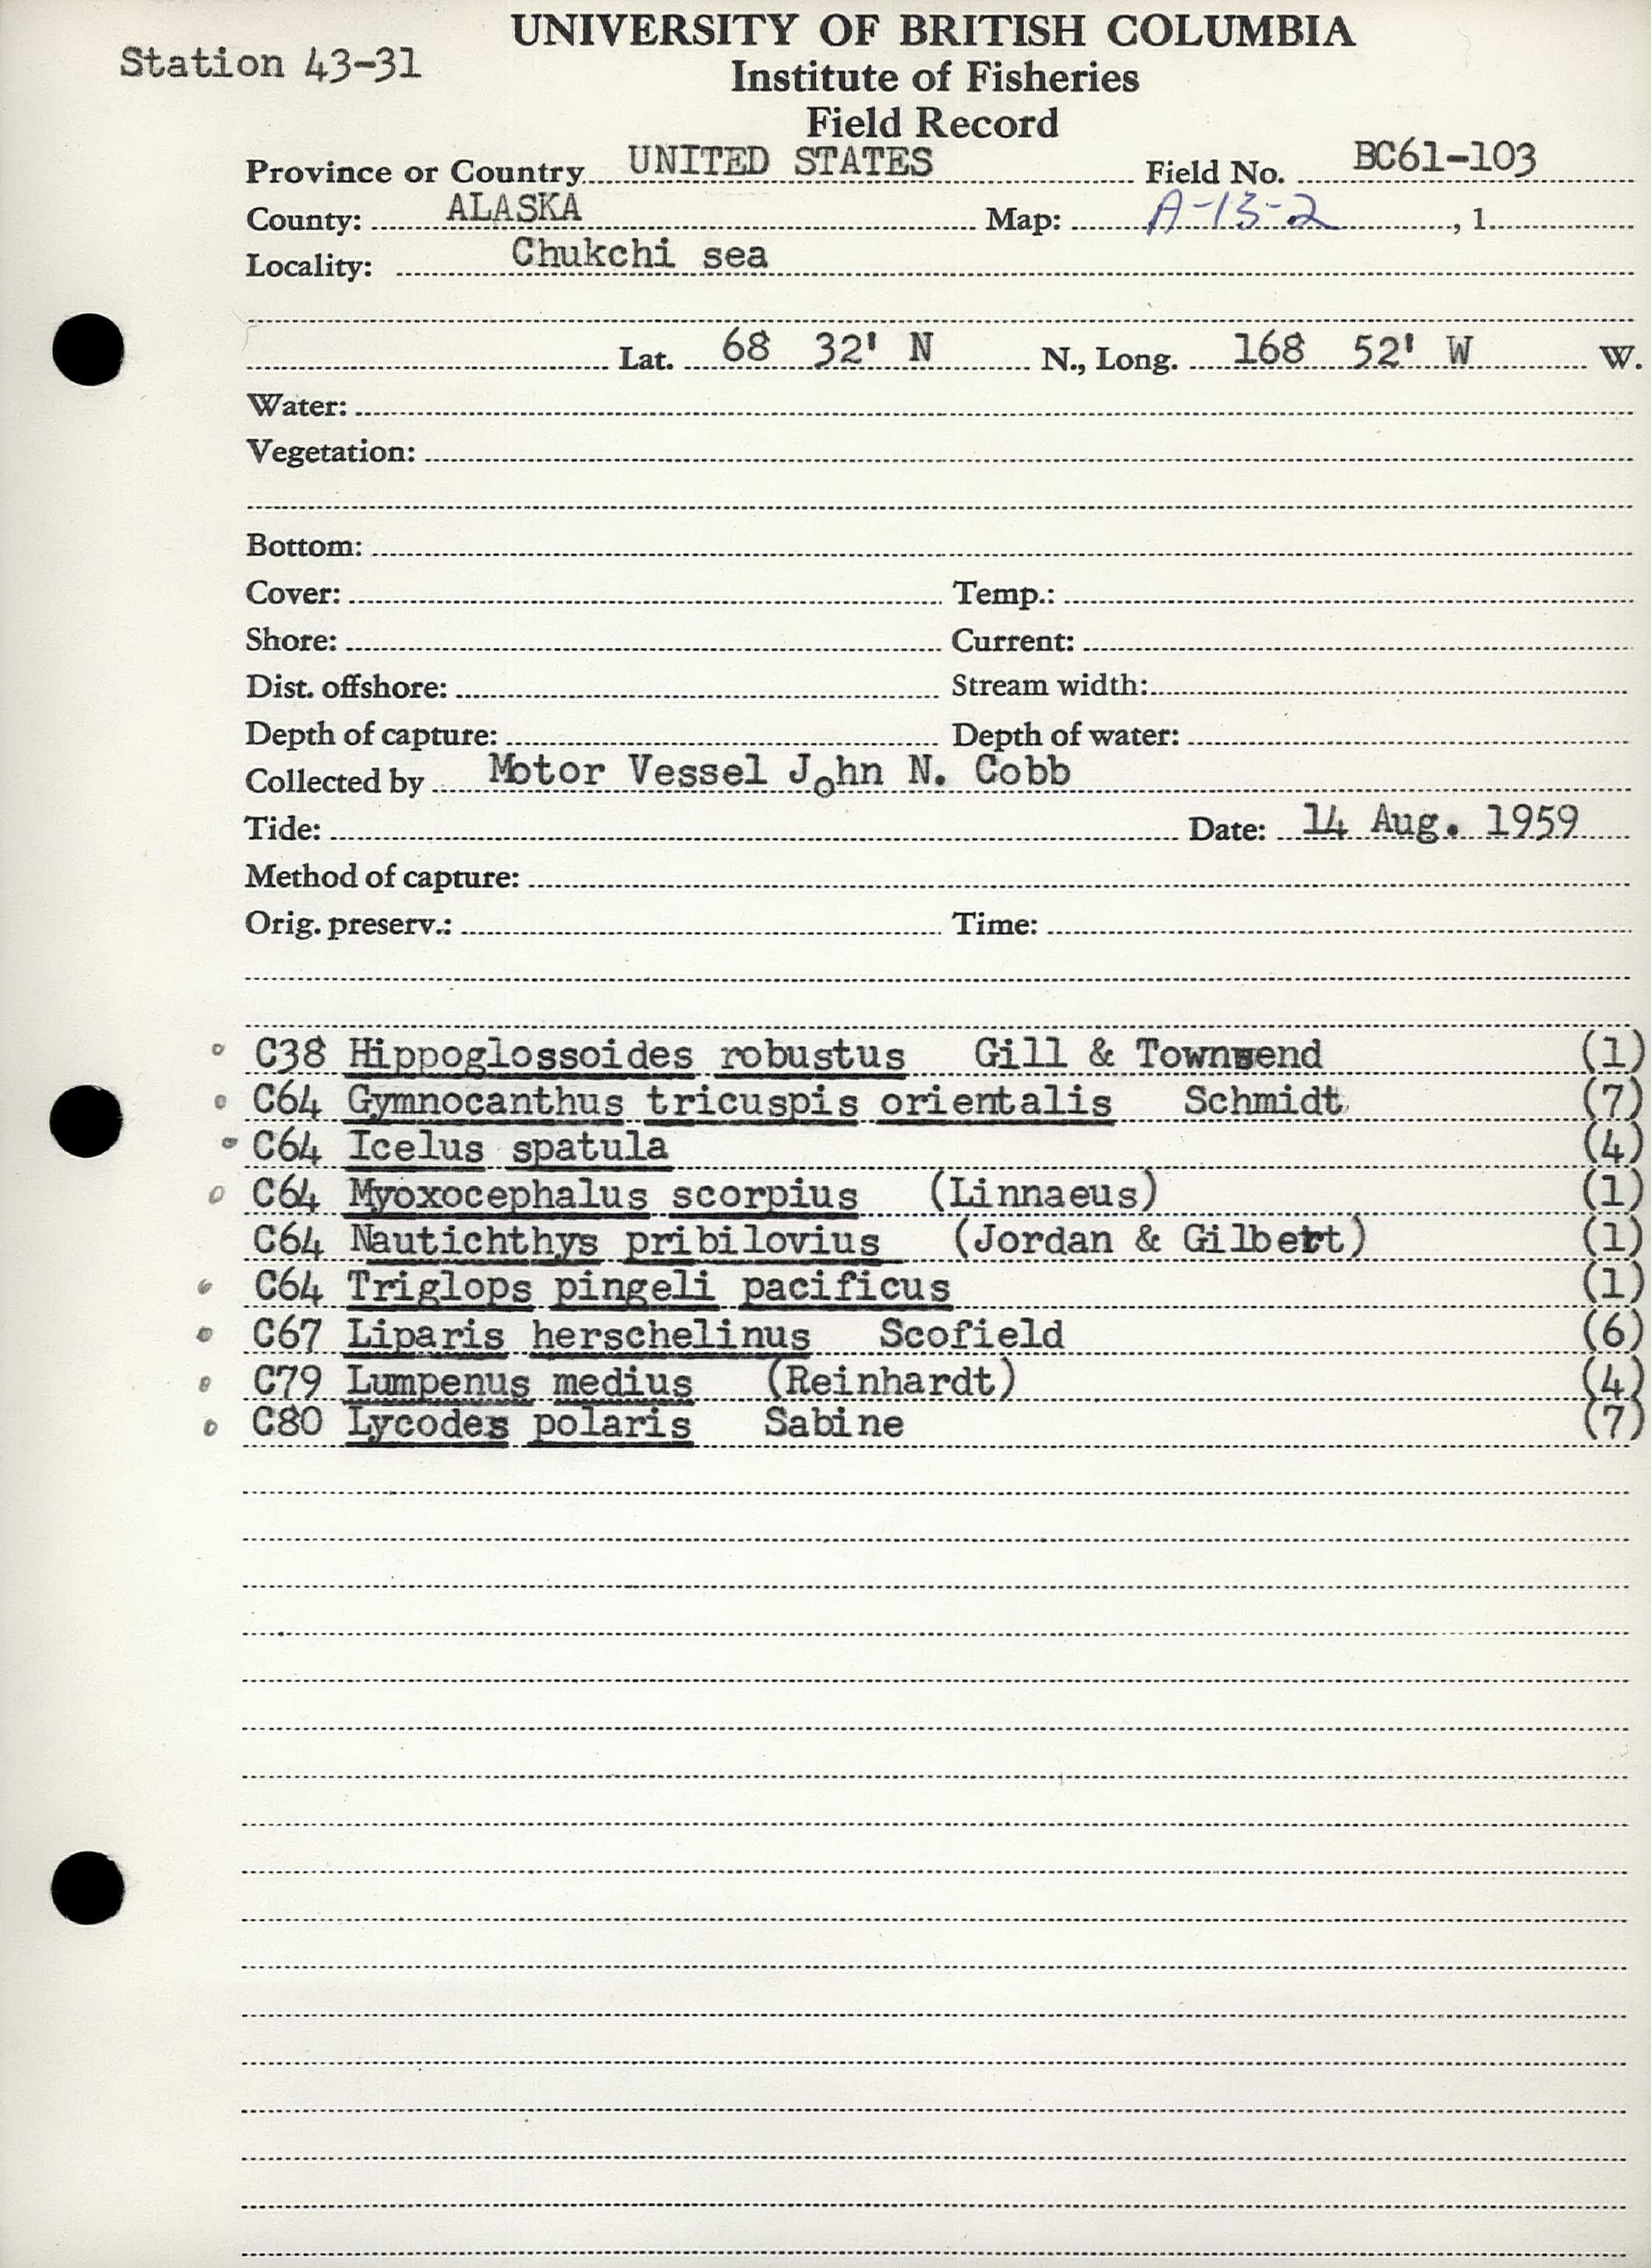 Station 43-31
UNIVERSITY OF BRITISH COLUMBIA
Institute of Fisheries
Field Record
Province or Country UNITED STATES Field No. BC61-103
County: ALASKA Map: A-13-2, 1
Locality: Chukchi sea
Lat. 68 32' N N., Long. 168 52' W W.
Water:
Vegetation:
Bottom:
Cover: Temp.:
Shore: Current:
Dist. offshore: Stream width:
Depth of capture: Depth of water:
Collected by Motor Vessel John N. Cobb
Tide: Date: 14 Aug. 1959
Method of capture:
Orig. preserv.: Time:
C38 Hippoglossoides robustus Gill & Townsend (1)
C64 Gymnocanthus tricuspis orientalis Schmidt (7)
C64 Icelus spatula (4)
C64 Myoxocephalus scorpius (Linnaeus) (1)
C64 Nautichthys pribilovius (Jordan & Gilbert) (1)
C64 Triglops pingeli pacificus (1)
C67 Liparis herschelinus Scofield (6)
C79 Lumpenus medius (Reinhardt) (4)
C80 Lycodes polaris Sabine (7)